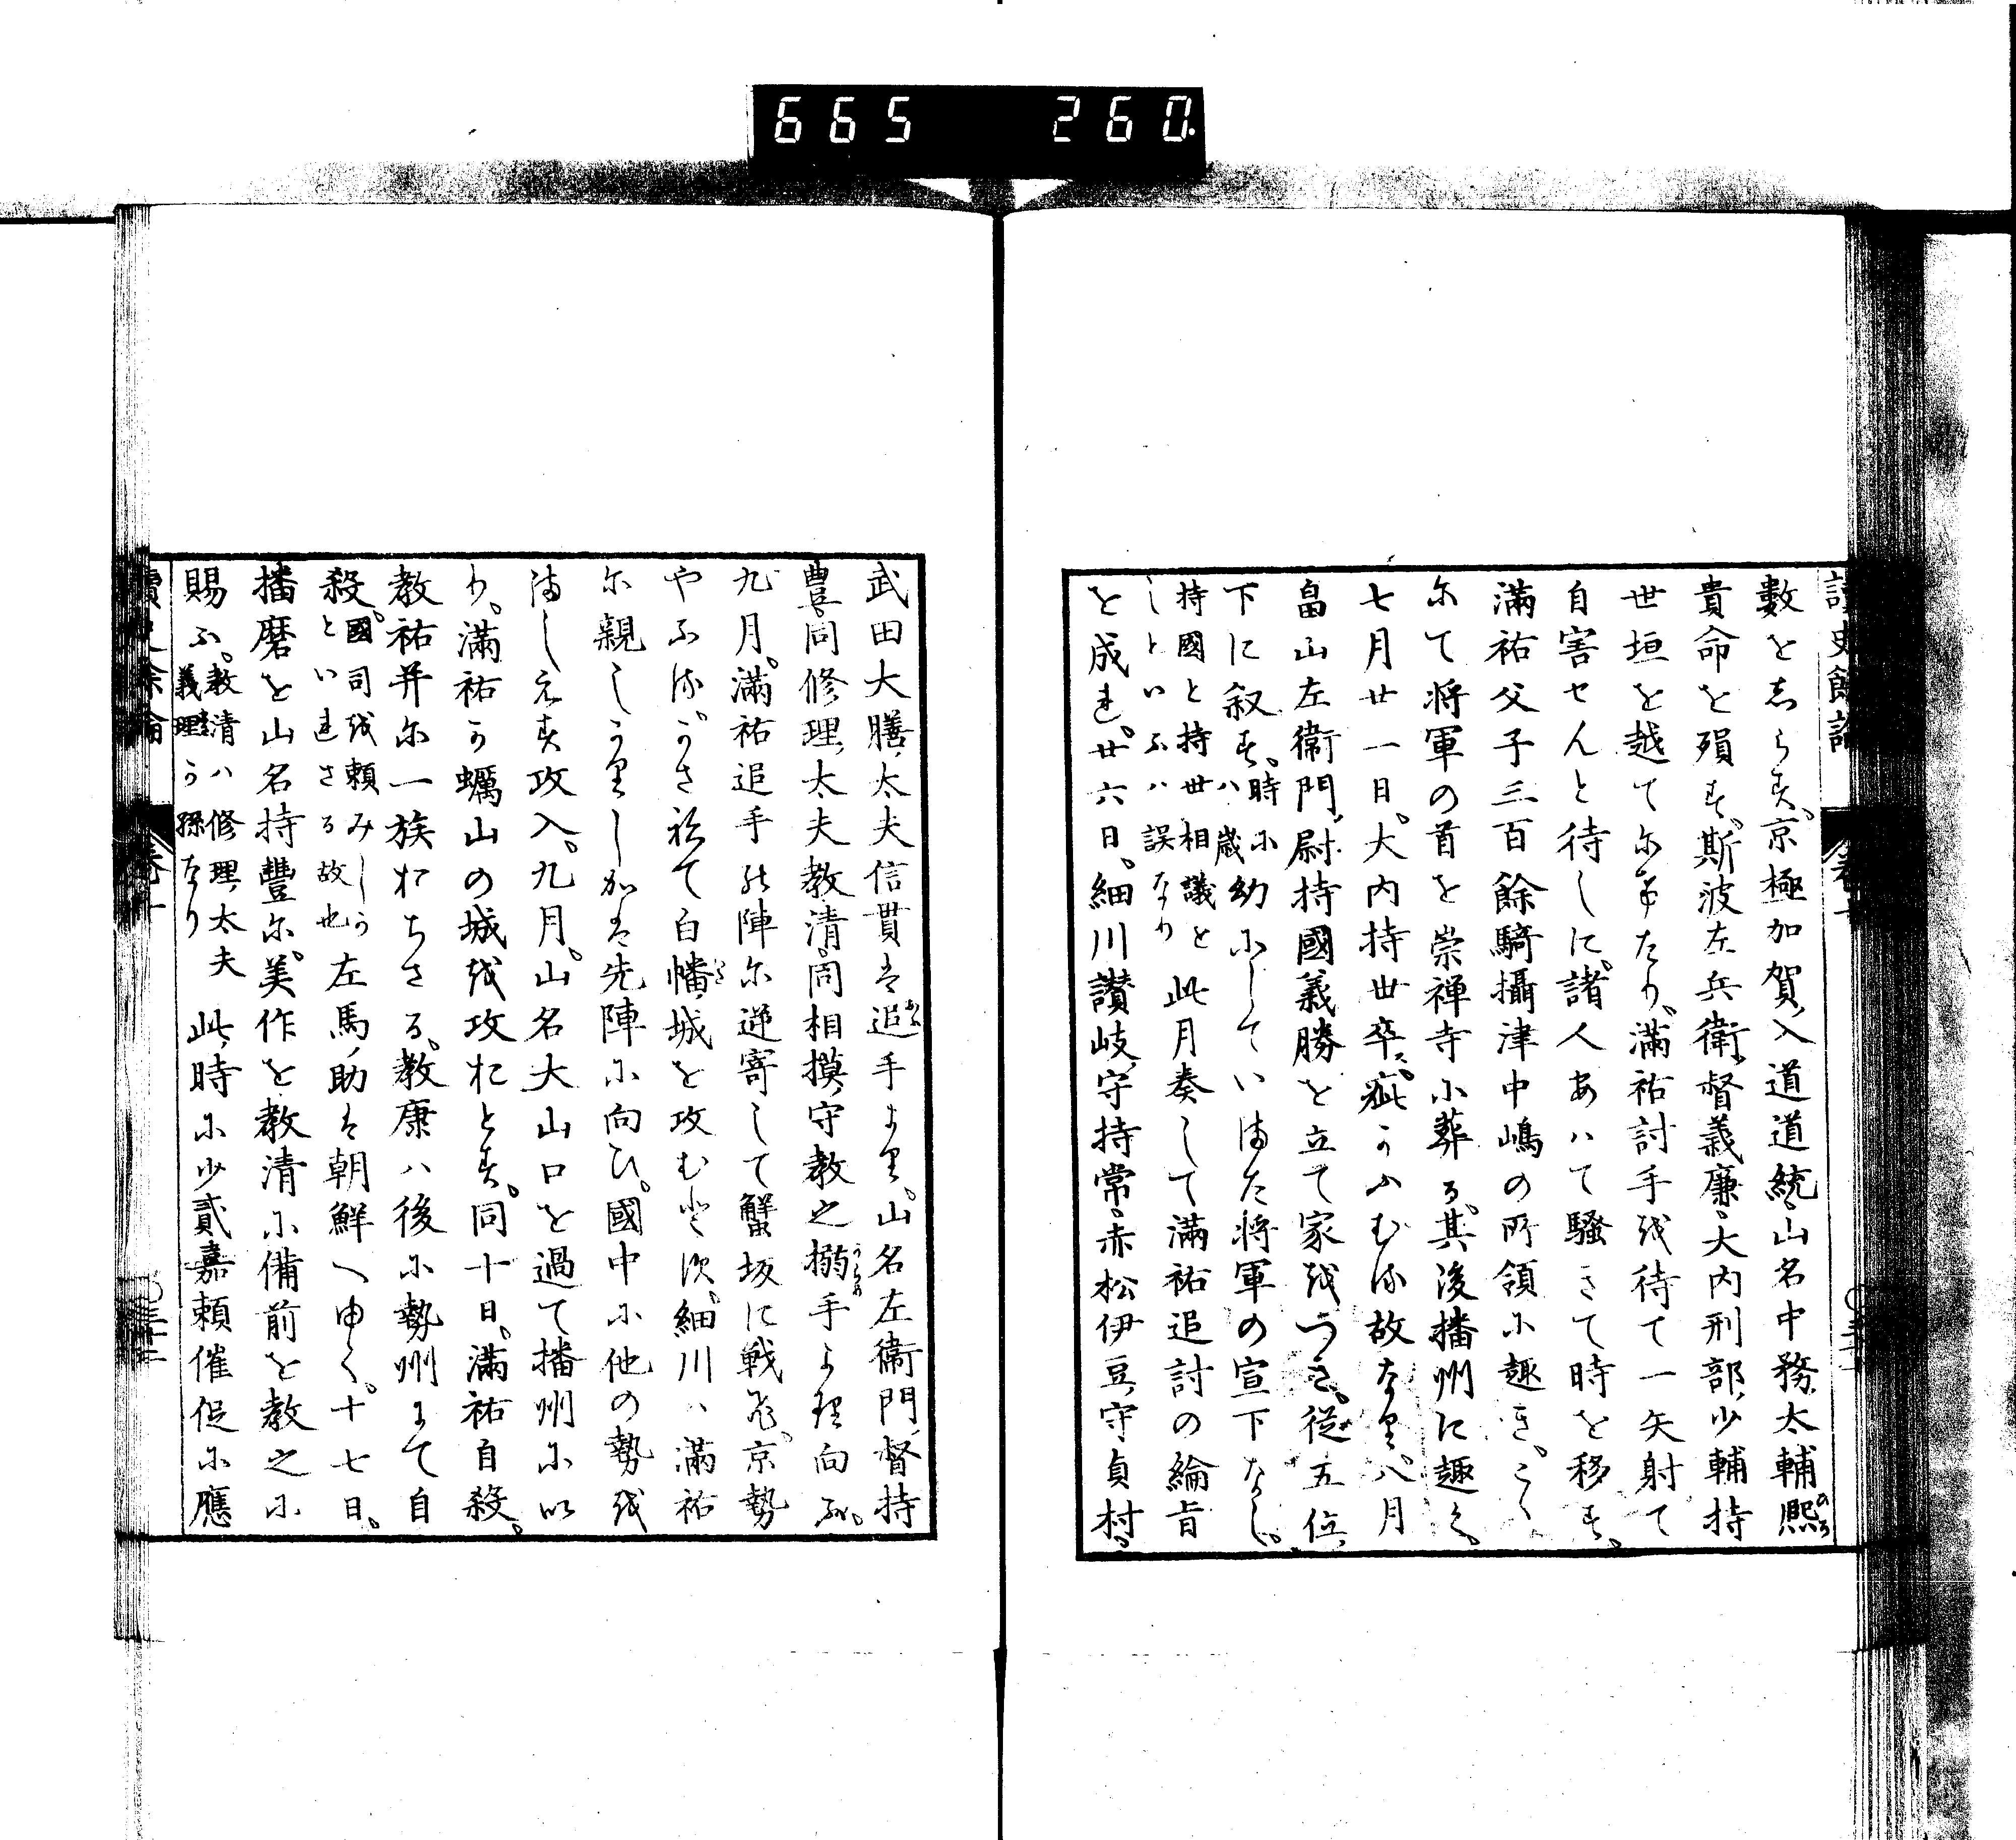 665 260
讀史餘論
數を志らす。京極加賀入道道統。山名中務太輔熈のり
貴命を殞す。斯波左兵衛督義廉。大内刑部少輔持
世垣を越てにけたり。滿祐討手を待て一矢射て
自害せんと待しに。諸人あハて騒きて時を移す。
滿祐父子三百餘騎攝津中嶋の所領に趣き。こゝ
にて将軍の首を崇禅寺に葬る。其後播州に趣く。
七月廿一日。大内持世卒。疵をかふむる故なり。八月
畠山左衛門尉持國義勝を立て家をつき。従五位
下に叙す。時に八歳幼にしていまた将軍の宣下なし。
持國と持世相議と
しといふハ誤なり
此月奏して滿祐追討の綸旨
を成る。廿六日。細川讃岐守持常。赤松伊豆守貞村。
武田大膳太夫信貫は追手より。山名左衛門督持
豊。同修理太夫教清。同相摸守教之搦手より向ふ。
九月。滿祐追手の陣に逆寄して蟹坂に戦ふ。京勢
やふる。かさねて白幡城を攻むといへ。細川ハ滿祐
に親しかりしかは先陣に向ひ。國中に他の勢を
ましえす攻入。九月。山名大山口を過て播州に以
り。滿祐か蠣山の城を攻おとす。同十日。滿祐自殺。
教祐并に一族おちさる。教康ハ後に勢州まて自
殺。國司を頼みしか
といれさる故也
左馬助は朝鮮へゆく。十七日。
播磨を山名持豐に。美作を教清に備前を教之に
賜ふ。教清ハ修理太夫
義理か孫なり
此時に少貳嘉頼催促に應